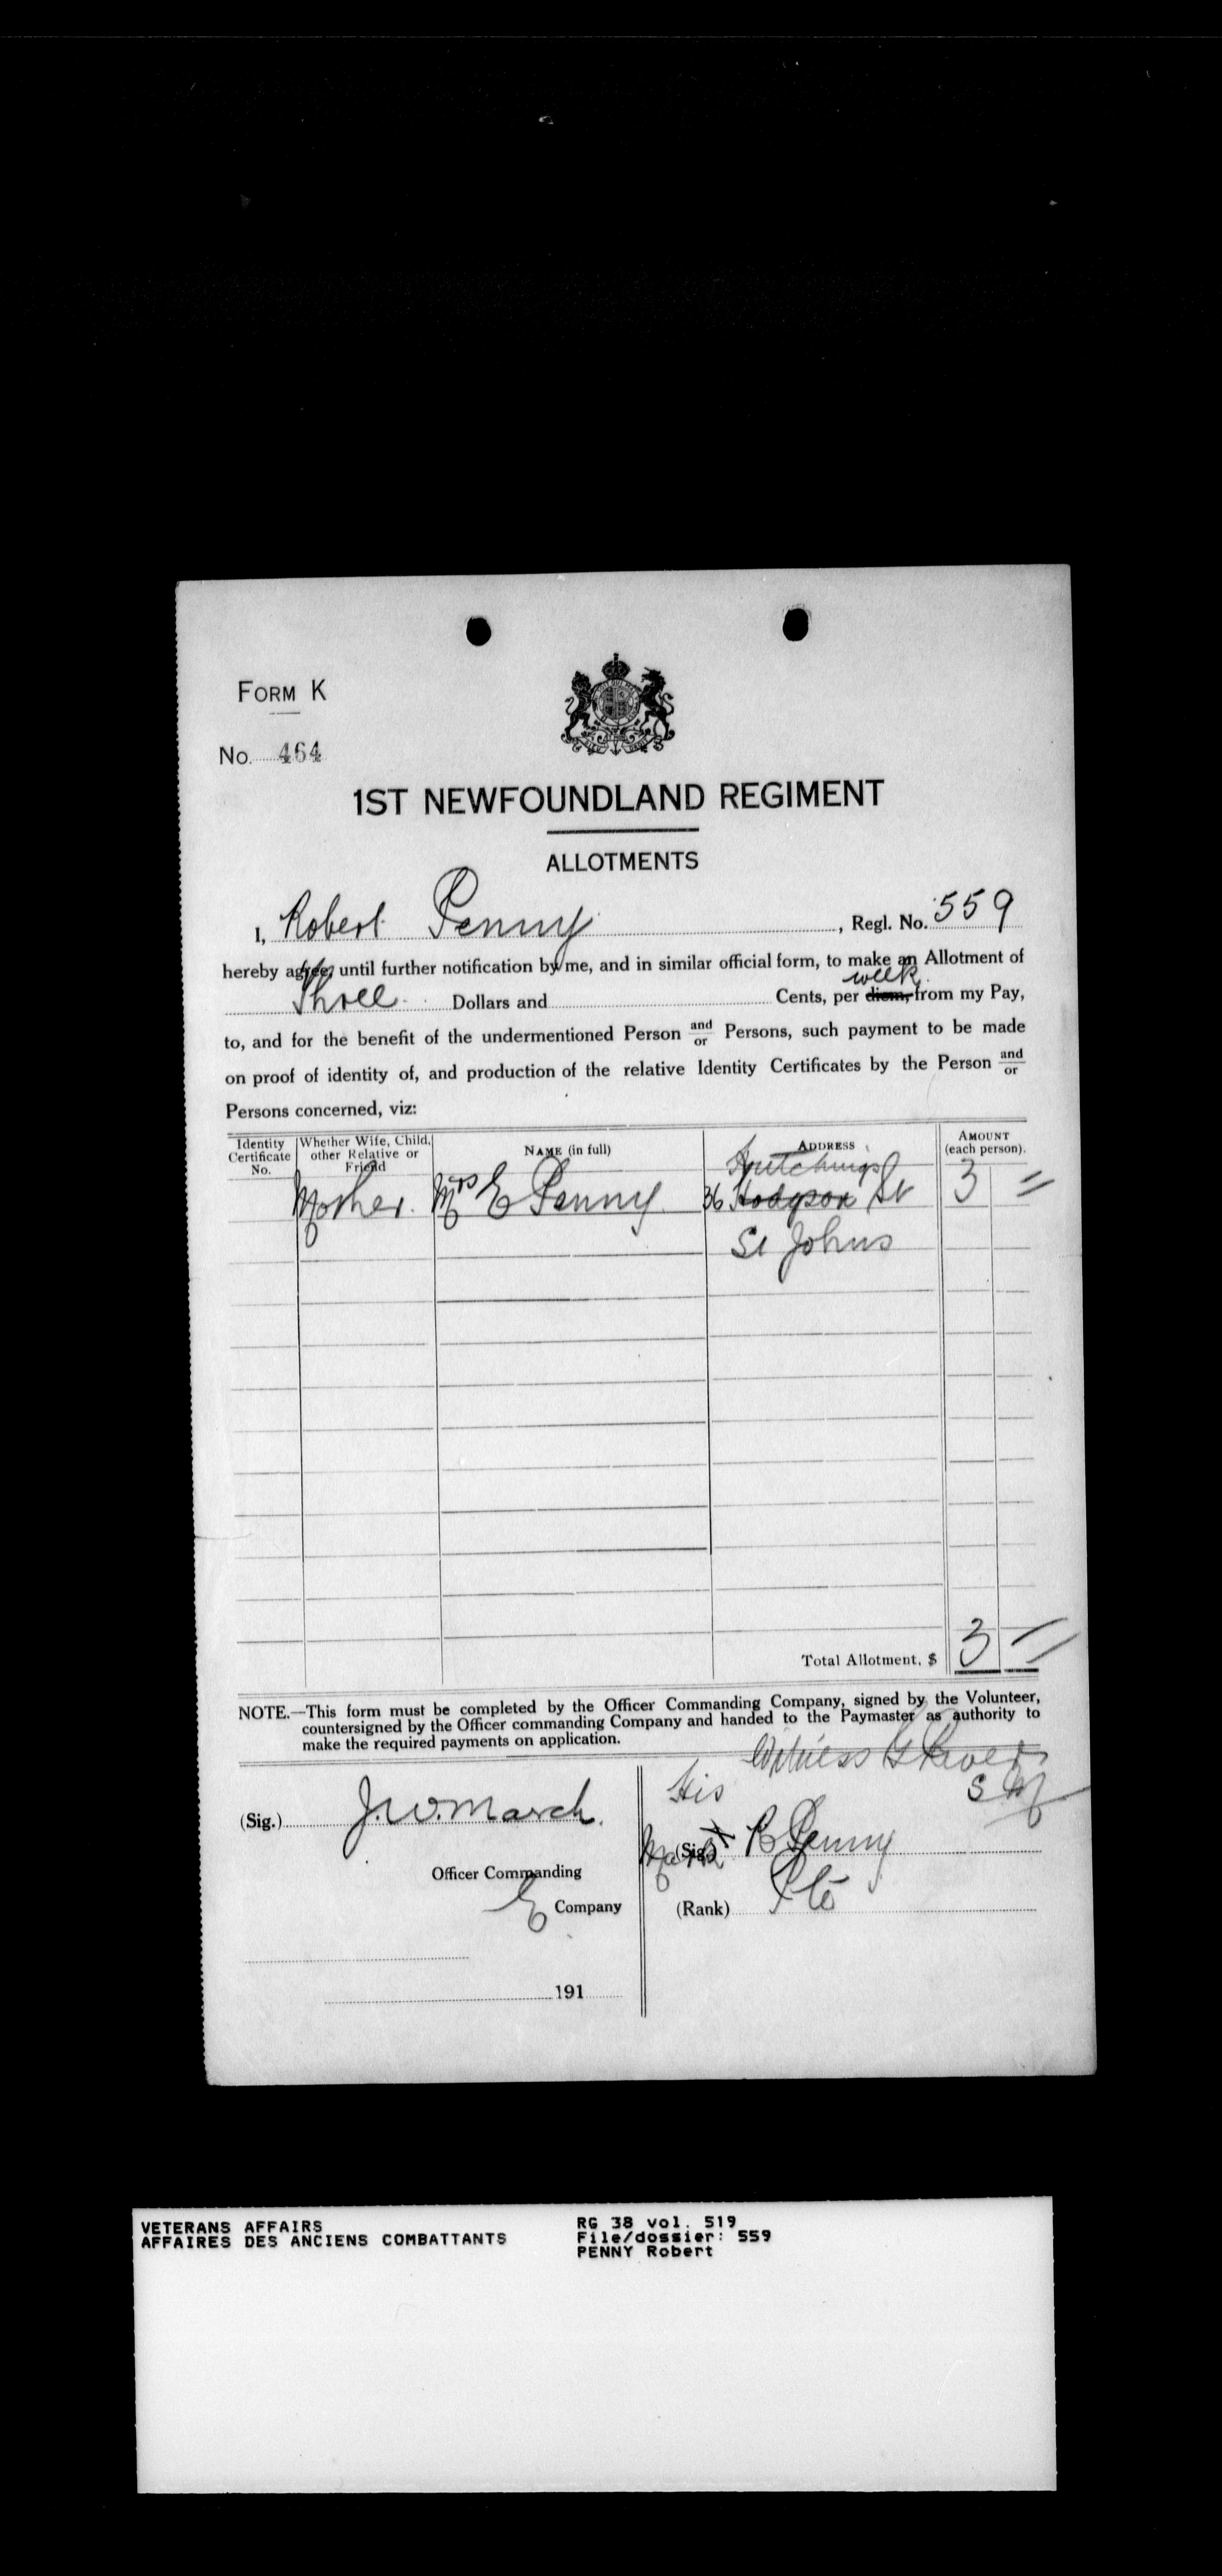 FORM K
No. 464
1ST NEWFOUNDLAND REGIMENT
ALLOTMENTS
I, Robert Penny, Regl. No. 559
hereby agree, until further notification by me, and in similar official form, to make an Allotment of
week
Three Dollars and Cents, per diem, from my Pay,
to, and for the benefit of the undermentioned Person and/or Persons, such payment to be made
on proof of identity of, and production of the relative Identity Certificates by the Person and/or
Persons concerned, viz:
Identity Certificate No. Whether Wife, Child, other Relative or Friend NAME (in full) ADDRESS AMOUNT (each person).
Hutchings
Mother. Mrs E Penny 36 Hodgson St 3 =
St Johns
Total Allotment, $ 3 =
NOTE.—This form must be completed by the Officer Commanding Company, signed by the Volunteer,
countersigned by the Officer commanding Company and handed to the Paymaster as authority to
make the required payments on application.
Witness
His S M
(Sig.) J.W. March.
Mark (Sig.) X R Penny
Officer Commanding
E Company
(Rank) Pte
191
VETERANS AFFAIRS
AFFAIRES DES ANCIENS COMBATTANTS
RG 38 vol. 519
File/dossier: 559
PENNY Robert